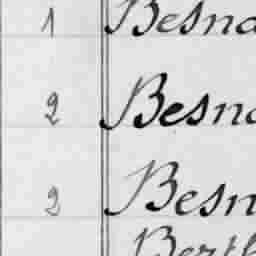 1 Besna
2 Besna
2 Besn
Berth